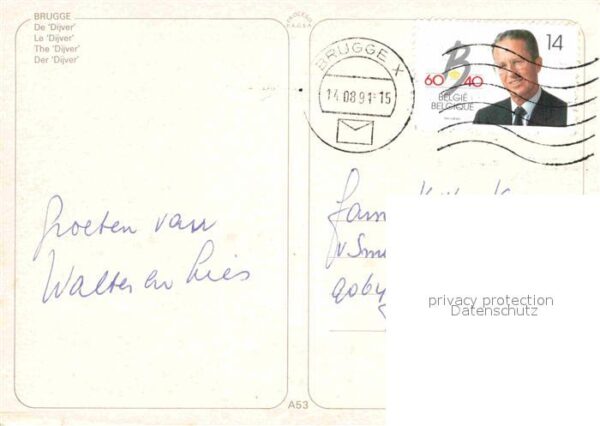 BRUGGE
De 'Dijver'
Le 'Dijver'
The 'Dijver'
Der 'Dijver'
BRUGGE X
14.08.91-15
14
B
60 40
BELGIË
BELGIQUE
Groeten van
Walter en Lies
Fam
9064
privacy protection
Datenschutz
A53